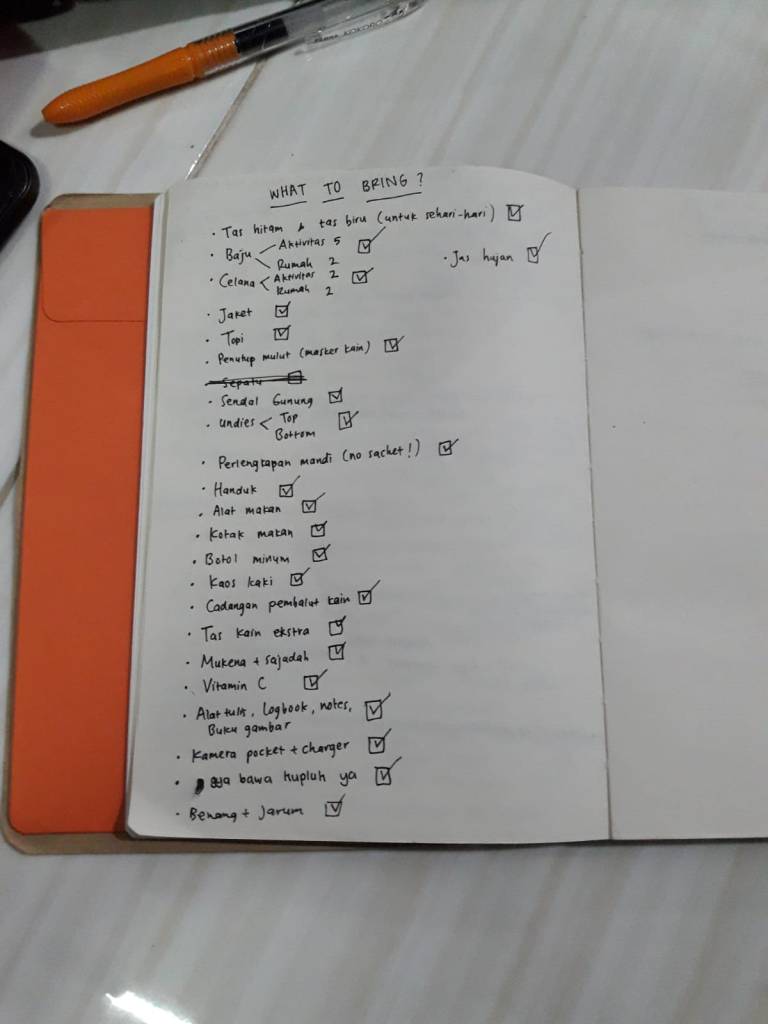 KOKORO
WHAT TO BRING?
• Tas hitam & tas biru (untuk sehari-hari) ☑
• Baju Aktivitas 5 ☑
Rumah 2
• Jas hujan ☑
• Celana Aktivitas 2 ☑
Rumah 2
• Jaket ☑
• Topi ☑
• Penutup mulut (masker kain) ☑
• Sepatu
• Sendal Gunung ☑
• Undies Top ☑
Bottom
• Perlengkapan mandi (no sachet!) ☑
• Handuk ☑
• Alat makan ☑
• Kotak makan ☑
• Botol minum ☑
• Kaos kaki ☑
• Cadangan pembalut kain ☑
• Tas kain ekstra ☑
• Mukena + sajadah ☑
• Vitamin C ☑
• Alat tulis, Logbook, notes, ☑
Buku gambar
• Kamera pocket + charger ☑
• bawa ya ☑
• Benang + Jarum ☑